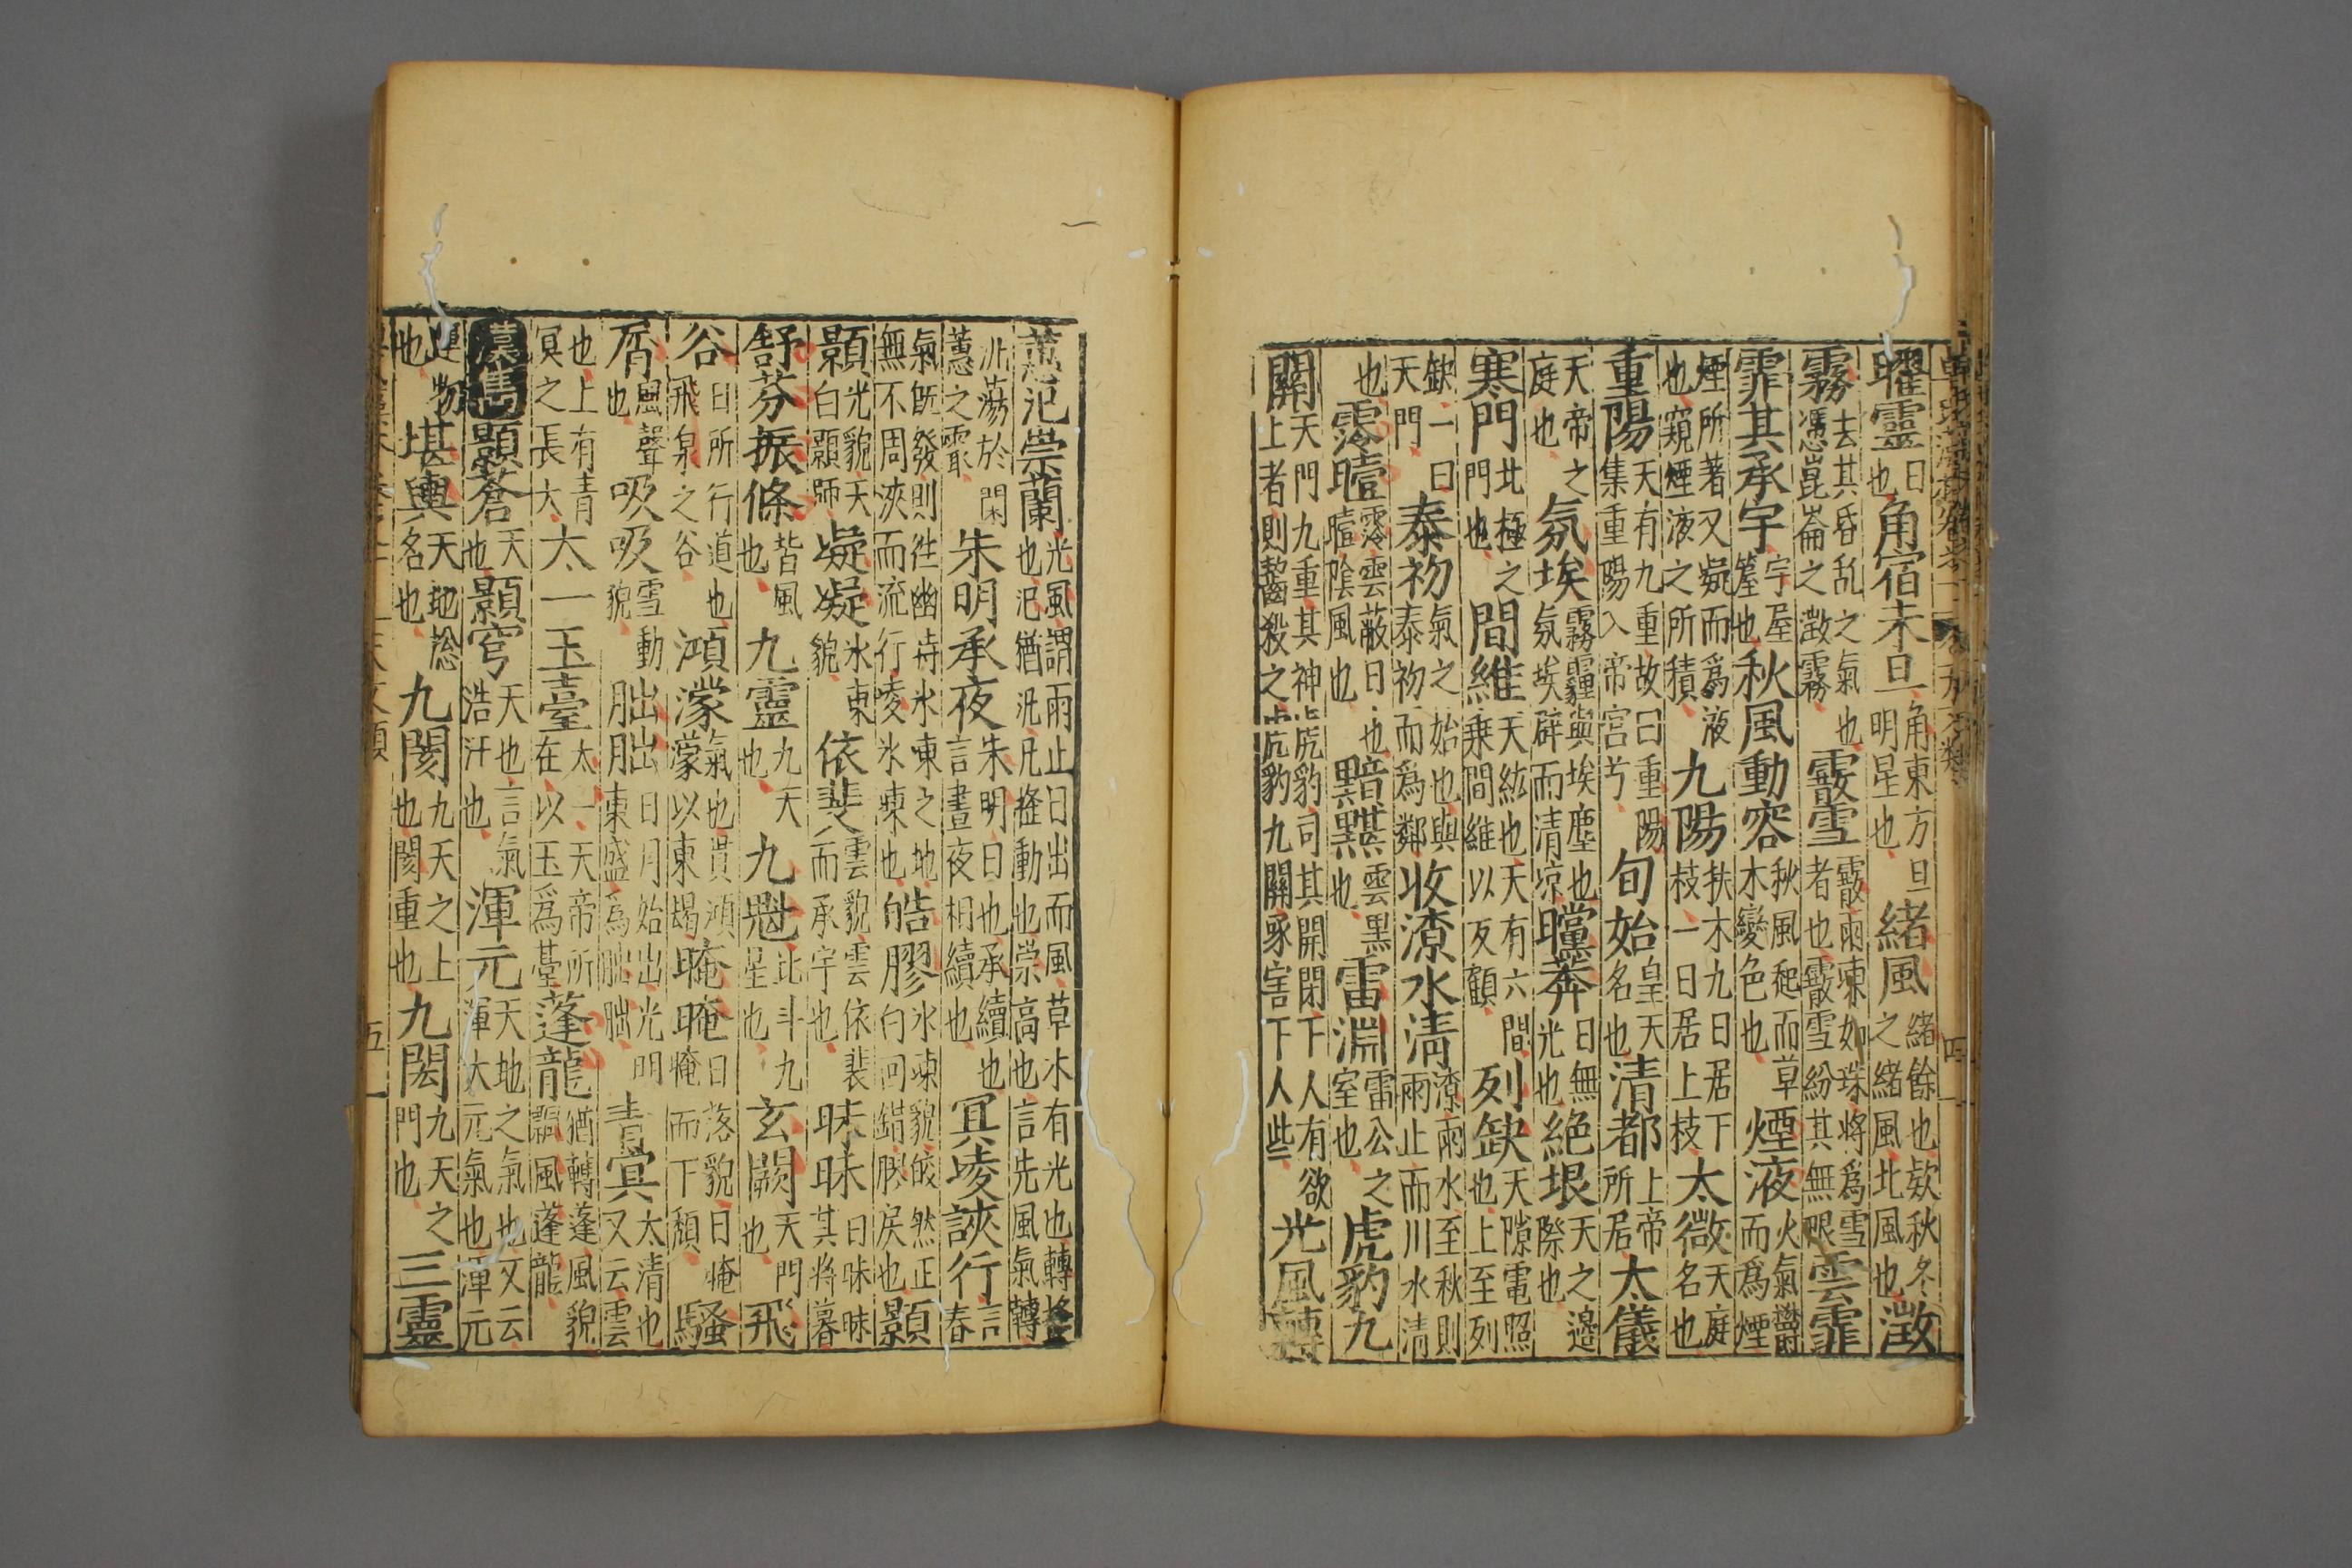 曜靈日也角宿未旦角東方旦明星也緒風緒餘也欵秋冬之緒風北風也澂
霧去其昏乱之氣也馮崑崙之澂霧霰雪霰雨凍如珠將爲雪者也霰雪紛其無垠雲霏
霏其承宇宇屋簷也秋風動容秋風起而草木變色也煙液火氣鬱而爲煙
煙所著又凝而爲液也窺煙液之所積九陽扶木九日居下枝一日居上枝太微天庭名也
重陽天有九重故曰重陽集重陽入帝宮兮旬始皇天名也清都上帝所居太儀
天帝之庭也氛埃霧霾與埃塵也氛埃辟而清凉曭莽日無光也絶垠天之邊際也
寒門北極之門也間維天紘也天有六間乘間維以反顧列缺天隙電照也上至列
缺一曰天門泰初氣之始也與泰初而爲鄰收潦水清潦雨水至秋則雨止而川水清
也霒曀霒雲蔽日也曀陰風也黯黮雲黑也雷淵雷公之室也虎豹九
關天門九重其神虎豹司其開閉下人有欲上者則齧殺之虎豹九關啄害下人些光風轉
蕙氾崇蘭光風謂雨止日出而風草木有光也轉搖也氾猶汎汎搖動也崇高也言先風氣轉
汎薄於閑蕙之叢朱明承夜朱明日也承續也言晝夜相續也冥凌浹行言春
氣既發則徃幽待冰凍之地無不周浹而流行凌冰凍也皓膠水凍貌皎然正白回錯膠戾也顥
顥光貌天白顥顥凝凝冰凍貌依斐雲貌雲依裴而承宇也昧昧日昧昧其將暮
舒芬振條皆風也九靈九天也九魁北斗九星也玄闕天門也飛
谷日所行道也飛泉之谷鴻濛氣也貫鴻濛以東朅晻晻日落貌日晻晻而下頹騷
屑風聲也吸吸雪動貌朏朏日月始出光明東盛爲朏朏青冥太清也又云雲
也上有青冥之長大太一玉臺太一天帝所在以玉爲臺蓬龍猶轉蓬風貌飄風蓬龍
顥蒼天也顥穹天也言氣浩汗也渾元天地之氣也又云渾大元氣也渾元
運物也堪輿天地总名也九閡九天之上也閡重也九閎九天之門也三靈